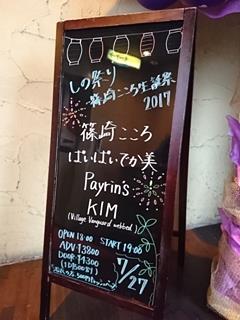 しの祭り
～篠崎こころ生誕祭
2017
篠崎こころ
ぱいぱいでか美
Payrin's
KIM
(Village Vanguard webbed)
OPEN 18:00 START 19:00
ADV ¥3800
DOOR ¥4300
(1D500円)
7/27